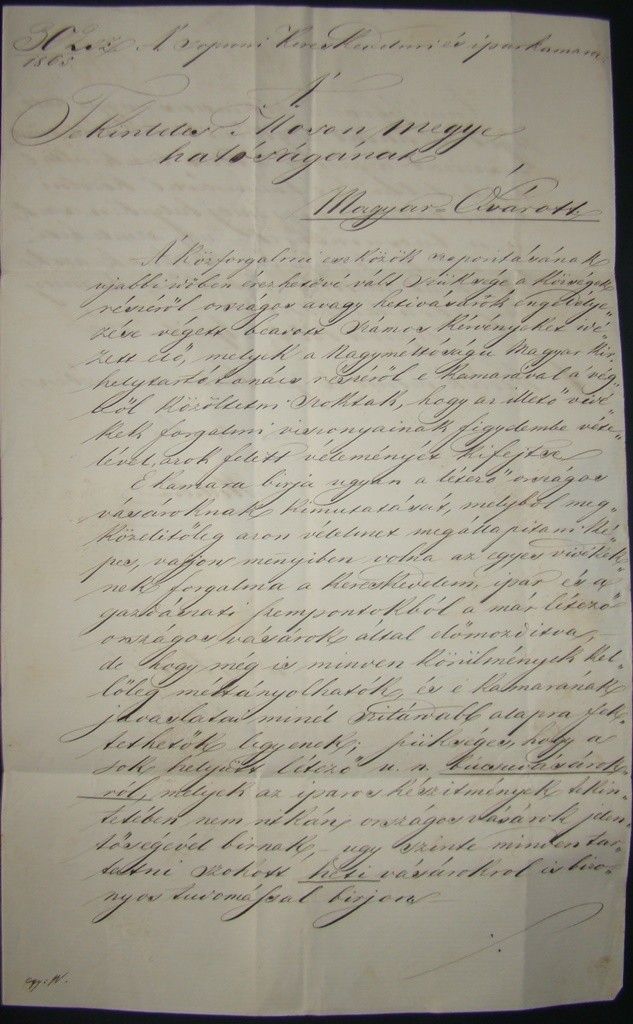 302 sz. A soproni kereskedelmi és iparkamara.
1865
A
Tekintetes Moson megye
hatóságának
Magyar-Óvárott
A közforgalmi eszközök szaporitásának
ujabbi időben érezhetővé vált szüksége a községek
részéről országos avagy hetivásárok engedélye„
zése végett beadott számos kérvényeket idé„
zett elő, melyek a Nagyméltóságu Magyar kir.
helytartótanács részéről e kamarával a vég„
ből közöltetni szoktak, hogy az illető vidé„
kek forgalmi viszonyainak figyelembe véte„
lével, azok felett véleményét kifejtse.
E kamara birja ugyan a létező országos
vásároknak kimutatását, melyből meg„
közelitőleg azon véleményt megállapitani ké„
pes, vajjon menyiben volna az egyes vidékek„
nek forgalma a kereskedelem, ipar és a
gazdászati szempontokból a már létező
országos vásárok által előmozditva, –
de hogy még is minden körülmények kel„
lőleg méltányolhatók, és e kamarának
javaslatai minél szilárdabb alapra fek„
tethetők legyenek; szükséges, hogy a
sok helyütt létező u. n. bucsuvásárok„
ról, melyek az iparos készitmények tekin„
tetében nem ritkán országos vásárok jelen„
tőségével birnak, – ugy szinte minden tar„
tatni szokott heti vásárokrol is bizo„
nyos tudomással birjon.